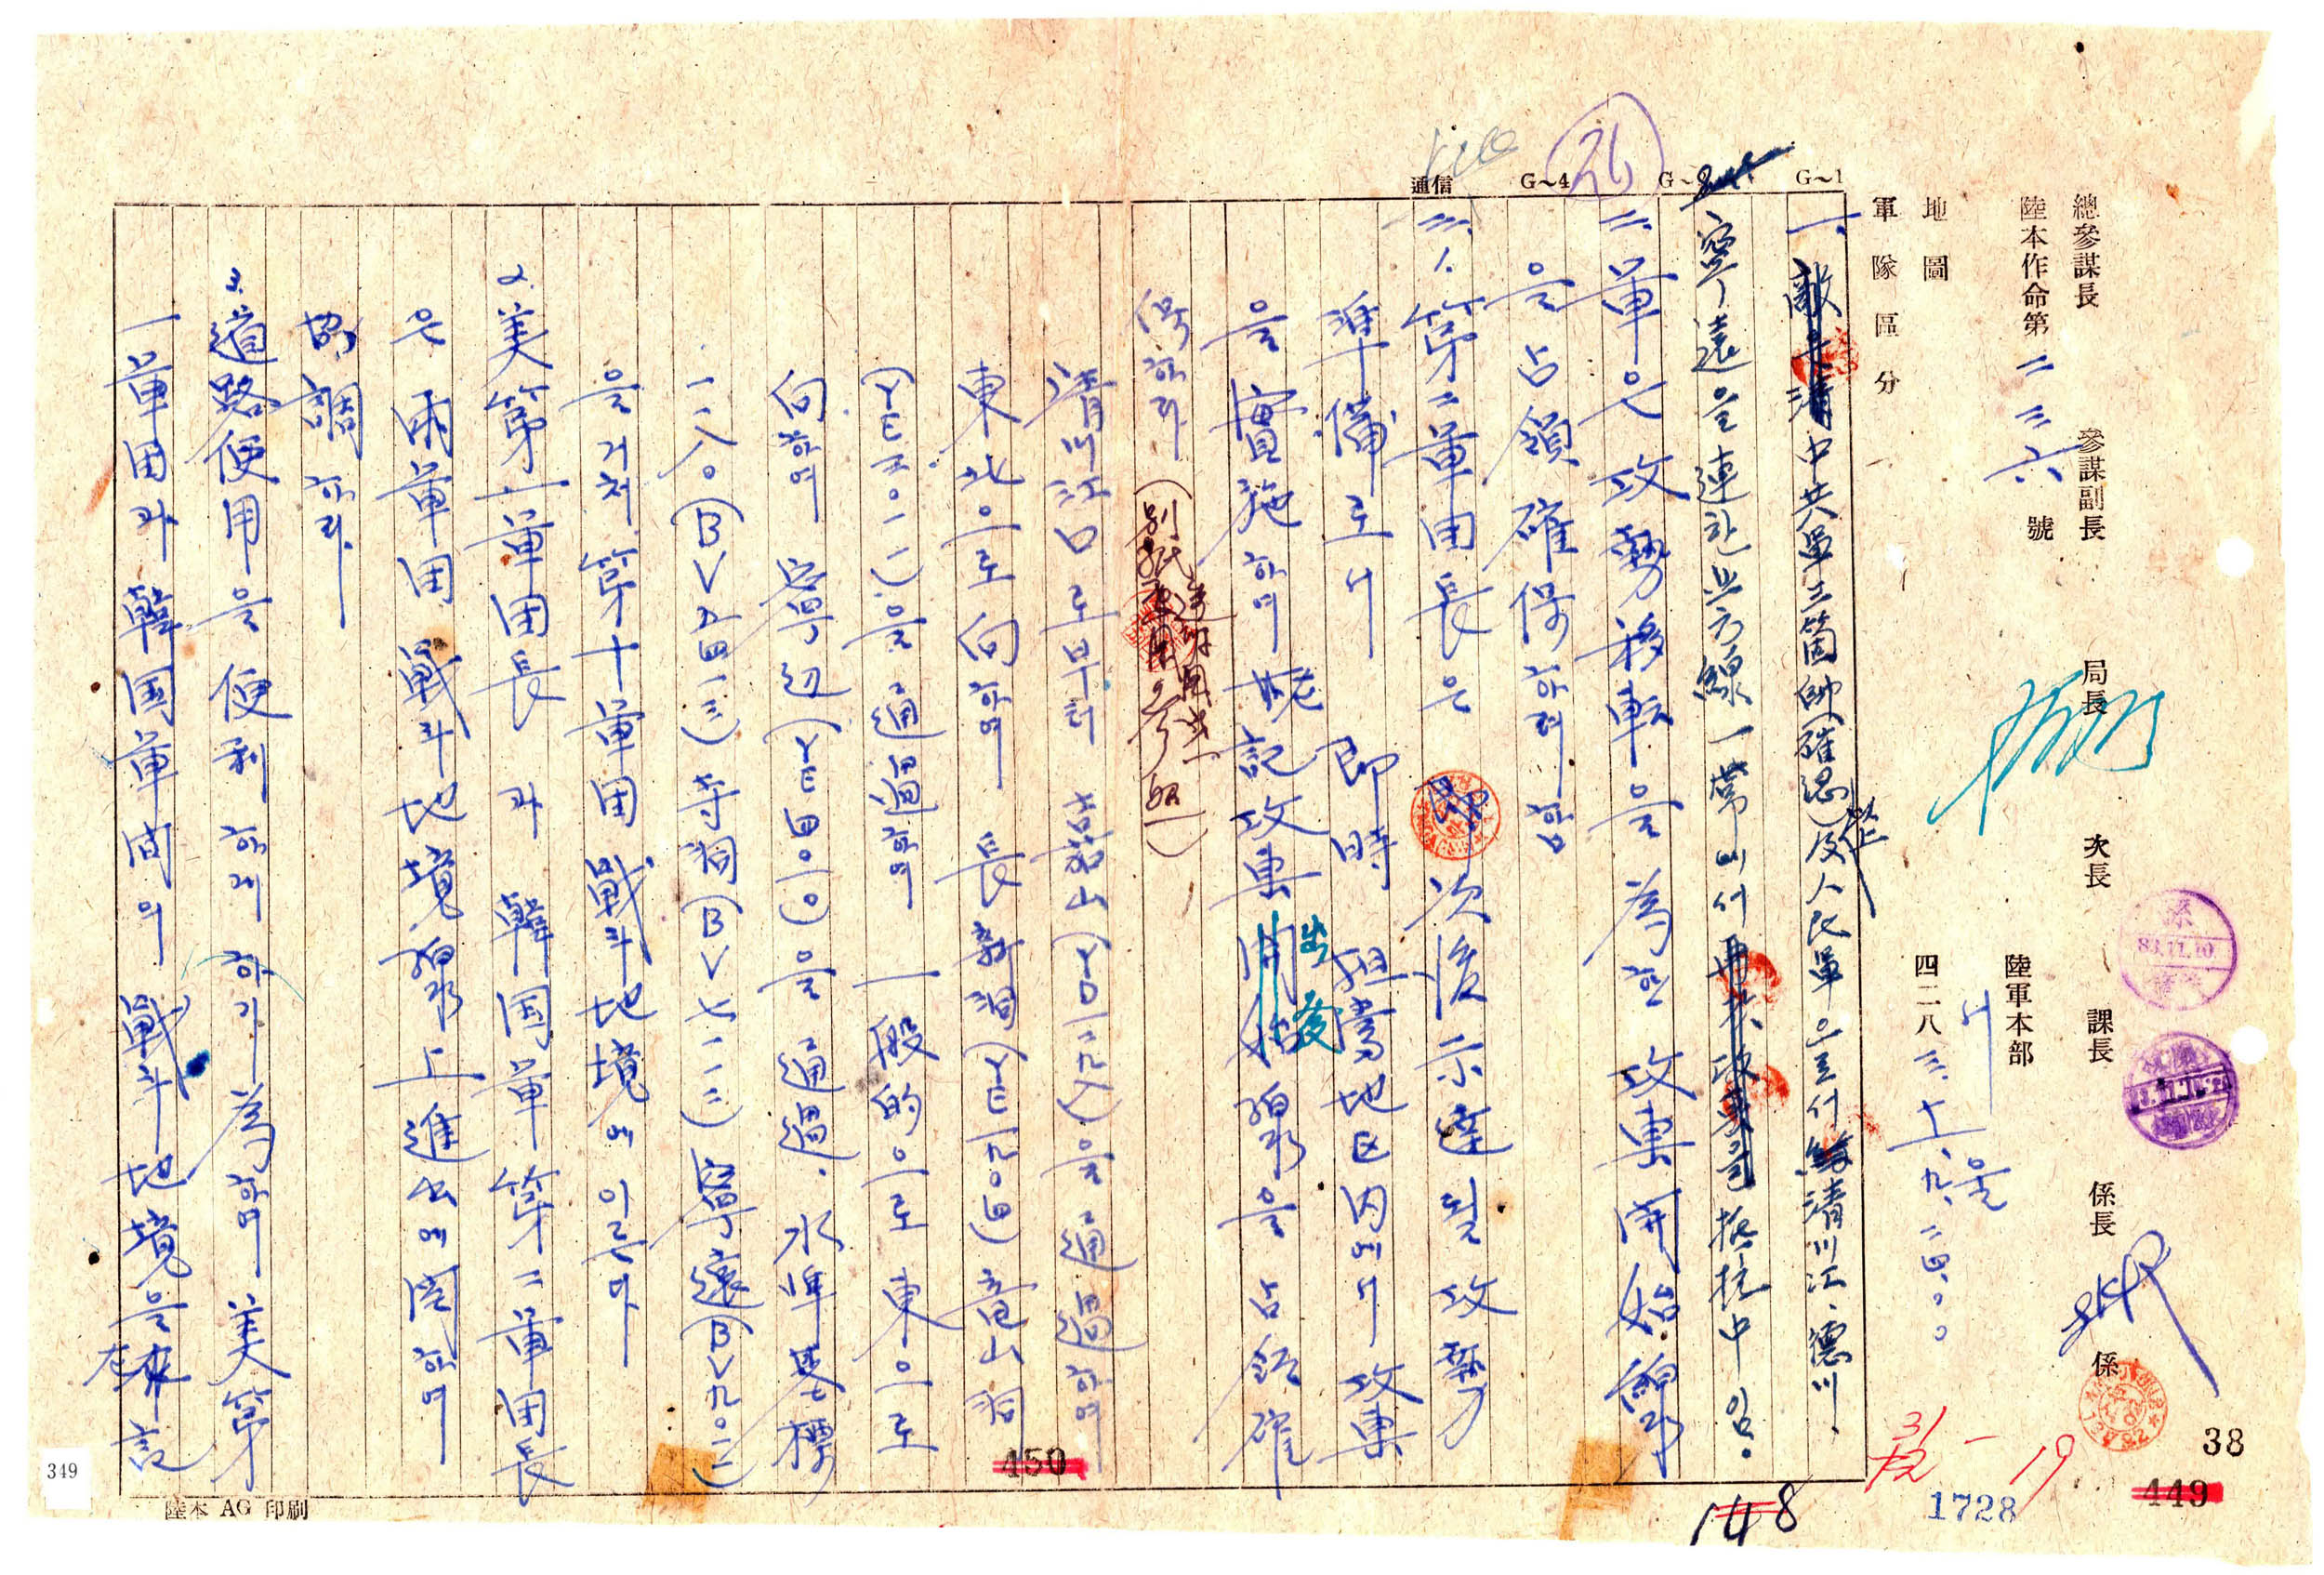 總參謀長 參謀副長 局長 次長 課長 係長 係
陸本作命第二三六號
陸軍本部
地圖
四二八三、十一、九、二四、〇〇
軍隊區分
G~1
G~4
通信
一、敵은 中共軍三箇師(確認)以上 及人民軍으로서 清川江、德川、
寧遠을 連한 北方線一帶에서 抵抗中임。
二、軍은 攻勢移転을 為한 攻擊開始線
을 占領確保하려 함
三、1. 第二軍団長은 次後示達될 攻勢
準備로서 即時 担當地区内에서 攻擊
을 實施하여 其記攻擊出發線을 占領確
保하라 (別紙透明図 第一 參照)
清川江口로부터 (YD一二九八)을 通過하여
東北으로 向하여 長新洞(YE一九〇四) 竜山洞
(YE三〇一一)을 通過하여 一般的으로 東으로
向하여 寧辺(YE四〇一〇)을 通過、水準基標
一一八〇(BV五四一三) 寺洞(BV七一一二) 寧遠(BV九〇二一)
을 거쳐 第十軍団 戦斗地境에 이른다
2. 美第一軍団長과 韓国軍第二軍団長
은 兩軍団 戦斗地境線上 進出에 関하여
協調하라.
3. 道路使用을 便利하게 하기 為하여 美第
一軍団과 韓国軍間의 戦斗地境을 左記
陸本 AG 印刷
38
449
450
1728
148
349